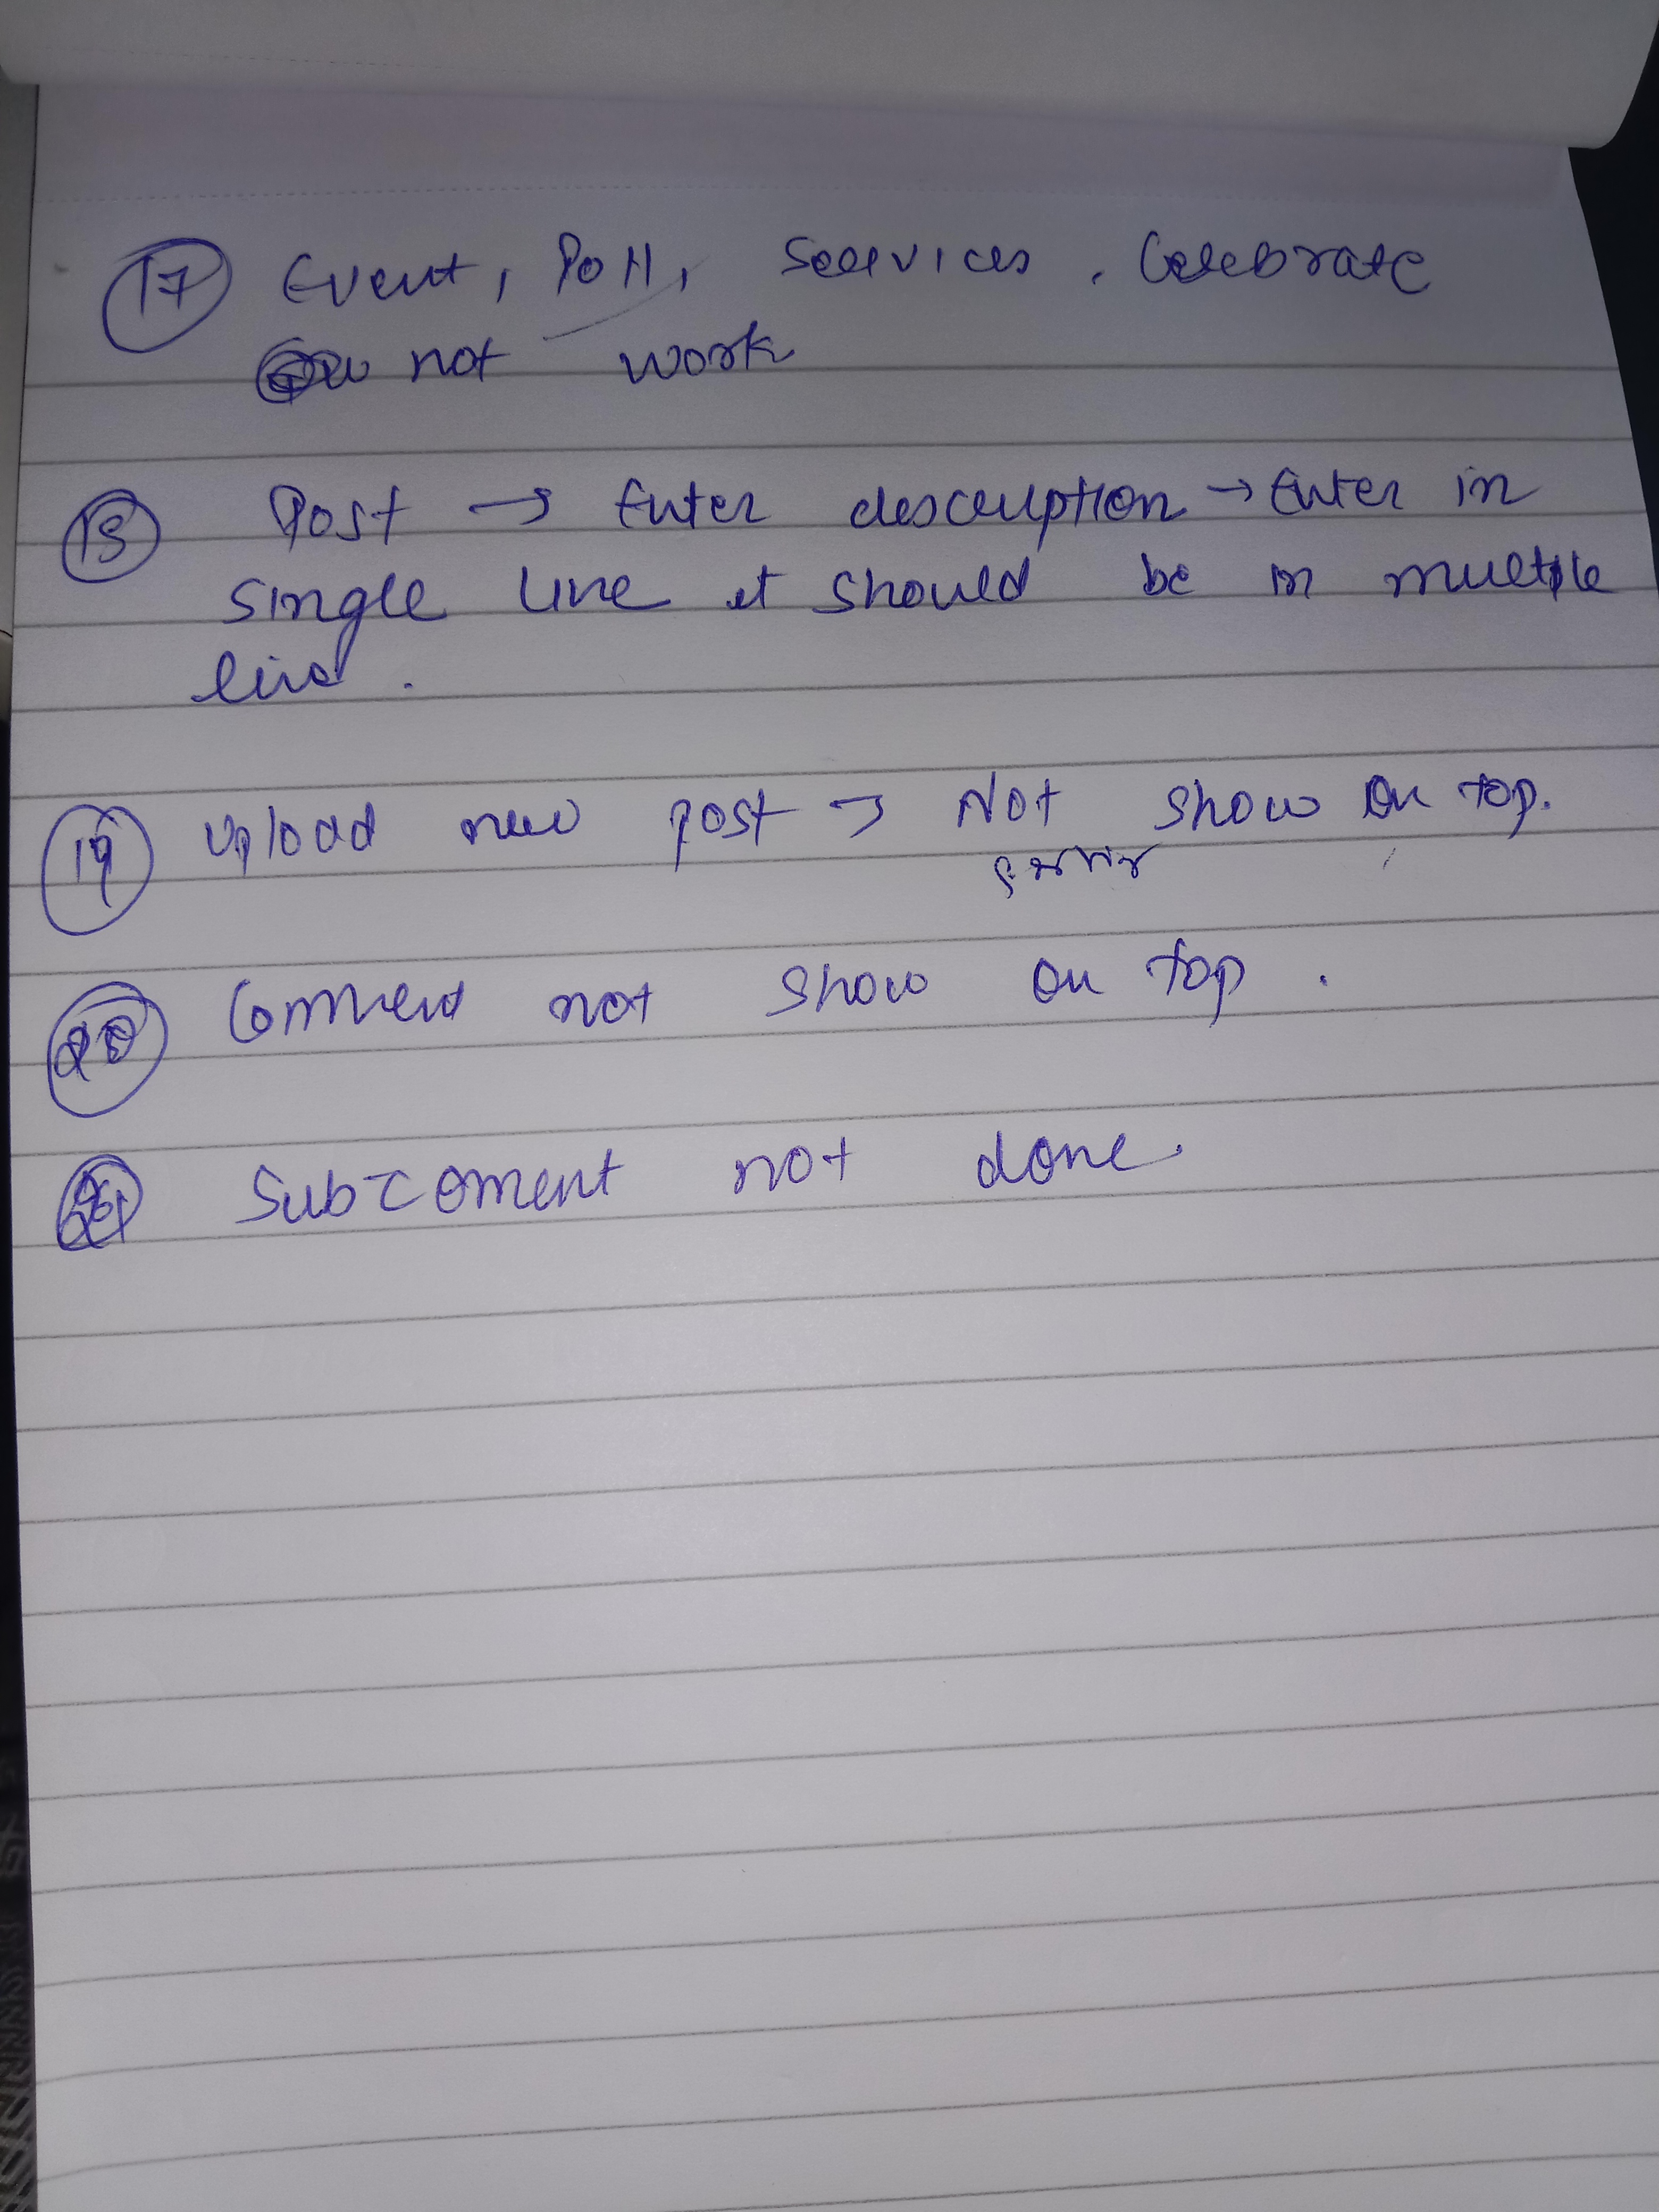 17 Event, Poll, Services, Celebrate
not work
18 Post → Enter description → Enter in
single line it should be in multiple
line.
19 Upload new post → Not show on top.
20 Comment not show on top.
21 Subcoment not done.